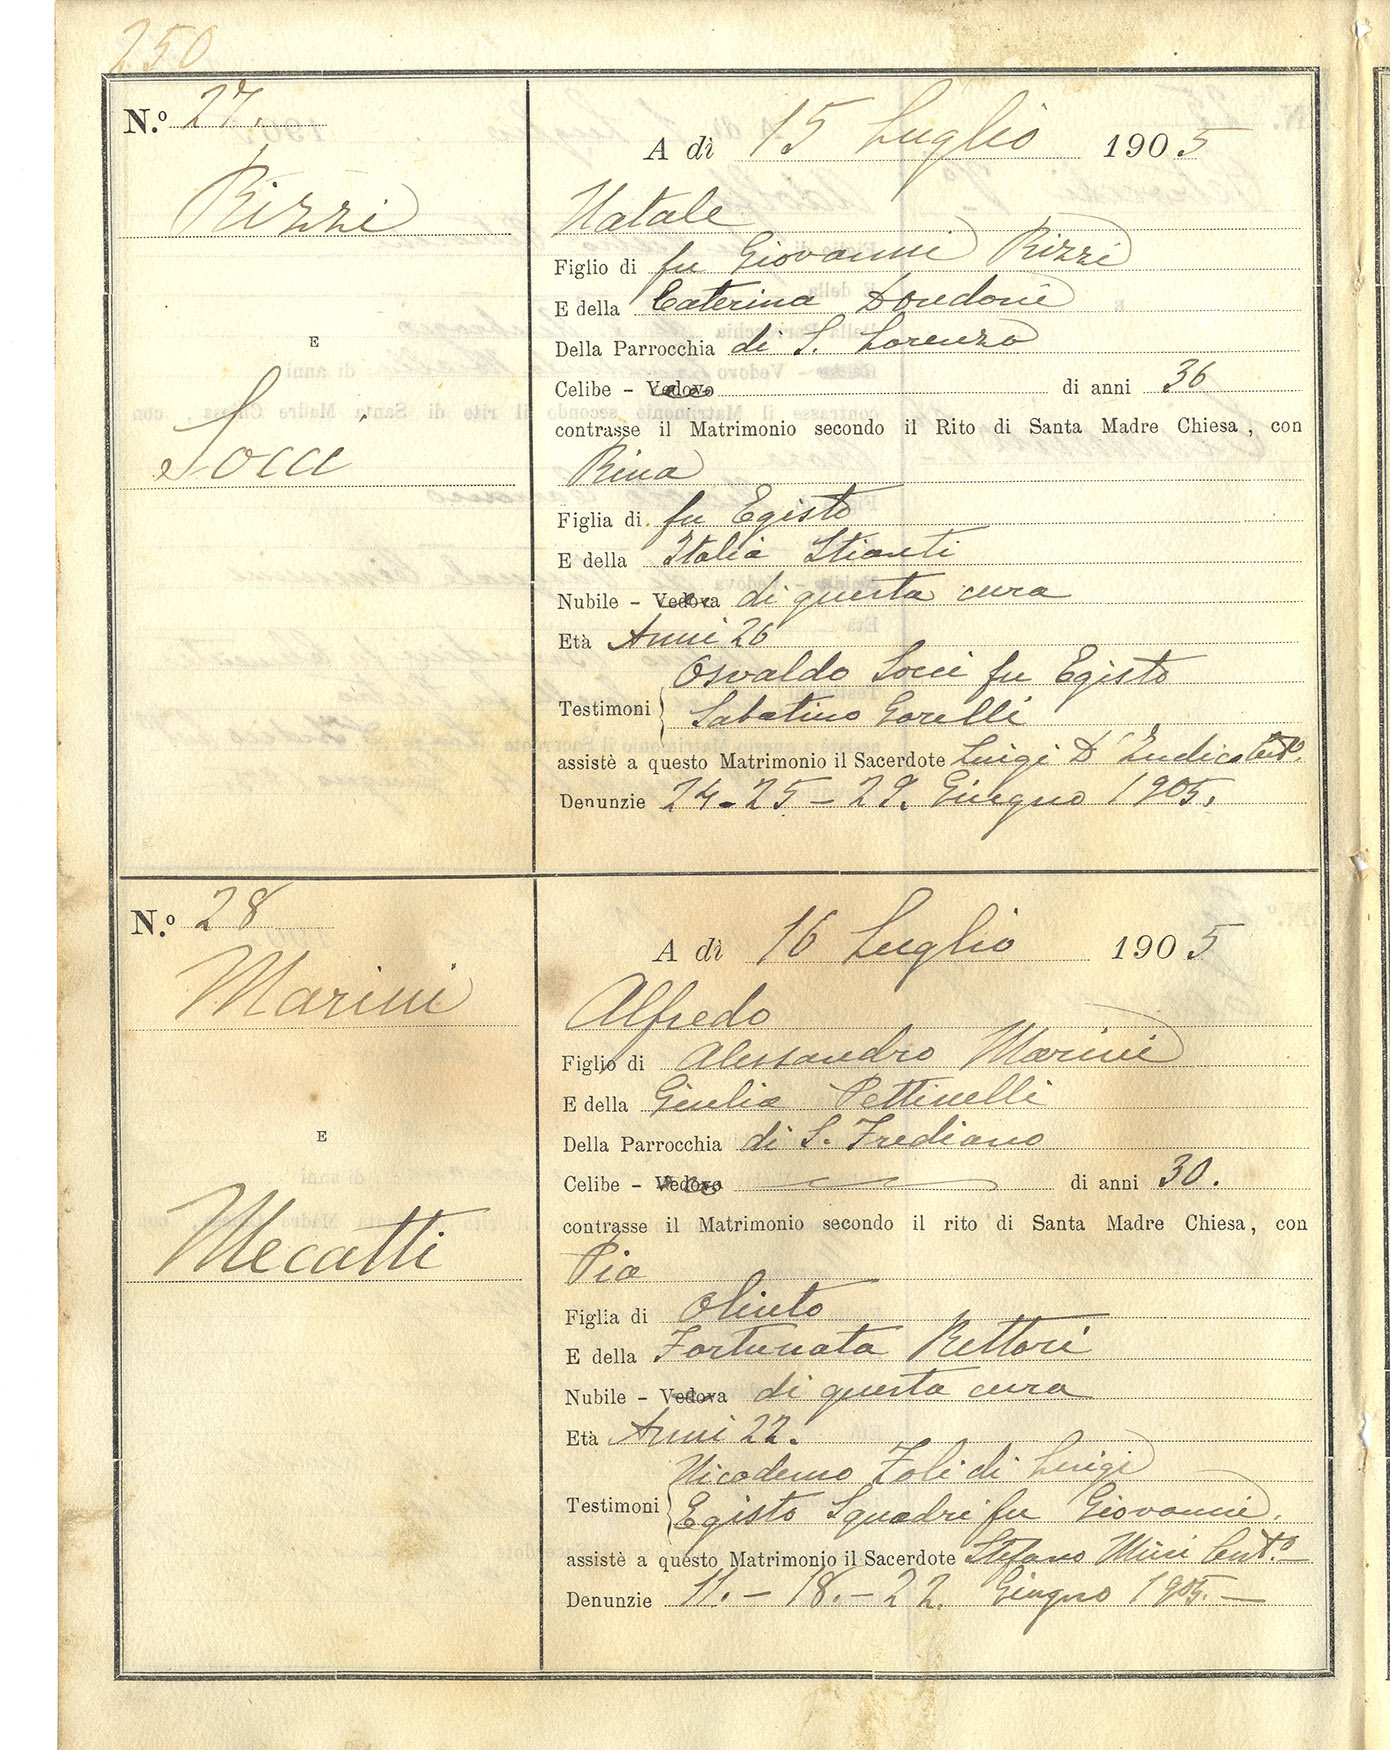 250
N.º 27.
A dì 15 Luglio 1905
Rizzi
E
Socci
Natale
Figlio di fu Giovanni Rizzi
E della Caterina Dondoni
Della Parrocchia di S. Lorenzo
Celibe – Vedovo di anni 36
contrasse il Matrimonio secondo il Rito di Santa Madre Chiesa, con
Rina
Figlia di fu Egisto
E della Italia Stianti
Nubile – Vedova di questa cura
Età Anni 26
Osvaldo Socci fu Egisto
Testimoni Sabatino Gorelli
assistè a questo Matrimonio il Sacerdote Luigi D'Indico
Denunzie 24 - 25 - 29. Giugno 1905.
N.º 28
A dì 16 Luglio 1905
Marini
E
Mecatti
Alfredo
Figlio di Alessandro Marini
E della Giulia Pettinelli
Della Parrocchia di S. Frediano
Celibe – Vedovo di anni 30.
contrasse il Matrimonio secondo il rito di Santa Madre Chiesa, con
Pia
Figlia di Olinto
E della Fortunata Rettori
Nubile – Vedova di questa cura
Età Anni 22.
Nicodemo Zoli di Luigi
Testimoni Egisto Squadri fu Giovanni.
assistè a questo Matrimonio il Sacerdote Stefano Mini
Denunzie 11. - 18. - 22. Giugno 1905. —